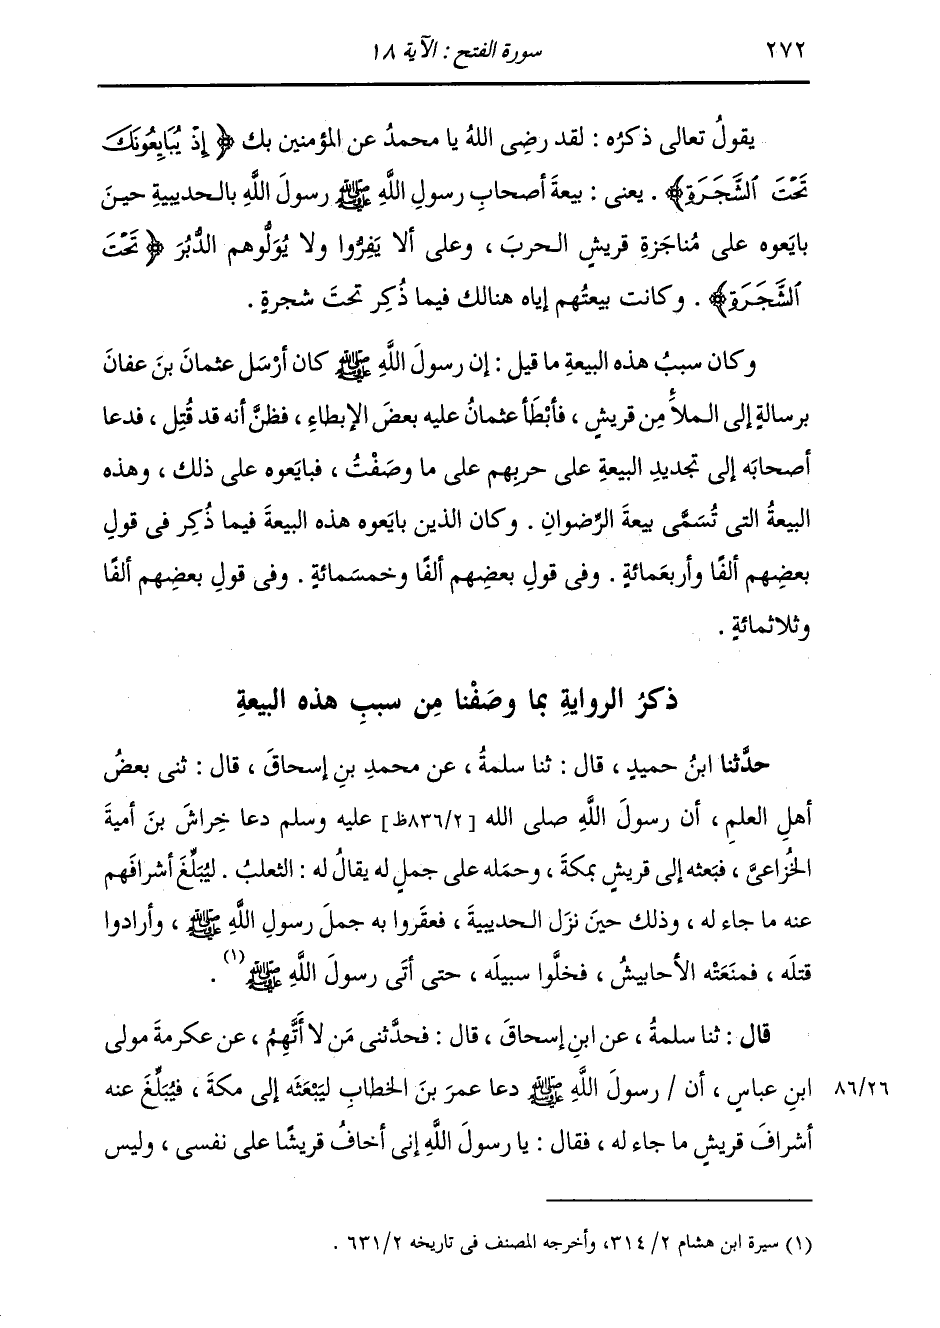 ٢٧٢
سورة الفتح : الآية ١٨
يقولُ تعالى ذكرُه : لقد رضِى اللهُ يا محمدُ عن المؤمنين بك ﴿ إِذْ يُبَايِعُونَكَ
تَحْتَ ٱلشَّجَرَةِ﴾ . يعنى : بيعةَ أصحابِ رسولِ اللَّهِ ﷺ رسولَ اللَّهِ بالحديبيةِ حينَ
بايَعوه على مُناجَزةِ قريشٍ الحربَ ، وعلى ألا يَفِرُّوا ولا يُوَلُّوهم الدُّبُرَ ﴿ تَحْتَ
ٱلشَّجَرَةِ﴾ . وكانت بيعتُهم إياه هنالك فيما ذُكِر تحتَ شجرةٍ .
وكان سببُ هذه البيعةِ ما قيل : إن رسولَ اللَّهِ ﷺ كان أرْسَل عثمانَ بنَ عفانَ
برسالةٍ إلى الملأِ مِن قريشٍ ، فأبْطَأ عثمانُ عليه بعضَ الإبطاءِ ، فظنَّ أنه قد قُتِل ، فدعا
أصحابَه إلى تجديدِ البيعةِ على حربِهم على ما وصَفْتُ ، فبايَعوه على ذلك ، وهذه
البيعةُ التى تُسَمَّى بيعةَ الرِّضوانِ . وكان الذين بايَعوه هذه البيعةَ فيما ذُكِر فى قولِ
بعضِهم ألفًا وأربعَمائةٍ . وفى قولِ بعضِهم ألفًا وخمسَمائةٍ . وفى قولِ بعضِهم ألفًا
وثلاثَمائةٍ .
ذكرُ الروايةِ بما وصَفْنا مِن سببِ هذه البيعةِ
حدَّثنا ابنُ حميدٍ ، قال : ثنا سلمةُ ، عن محمدِ بنِ إسحاقَ ، قال : ثنى بعضُ
أهلِ العلمِ ، أن رسولَ اللَّهِ صلى الله [٨٣٦/٢ظ] عليه وسلم دعا خِراشَ بنَ أميةَ
الخُزاعىَّ ، فبَعثه إلى قريشٍ بمكةَ ، وحمَله على جملٍ له يقالُ له : الثعلبُ . ليُبَلِّغَ أشرافَهم
عنه ما جاء له ، وذلك حينَ نزَل الحديبيةَ ، فعقَروا به جملَ رسولِ اللَّهِ ﷺ ، وأرادوا
قتلَه ، فمنَعَتْه الأحابيشُ ، فخلَّوا سبيلَه ، حتى أتَى رسولَ اللَّهِ ﷺ(١) .
قال : ثنا سلمةُ ، عن ابنِ إسحاقَ ، قال : فحدَّثنى مَن لا أَتَّهِمُ ، عن عكرمةَ مولى
٨٦/٢٦ ابنِ عباسٍ ، أن / رسولَ اللَّهِ ﷺ دعا عمرَ بنَ الخطابِ ليَبْعَثَه إلى مكةَ ، فيُبَلِّغَ عنه
أشرافَ قريشٍ ما جاء له ، فقال : يا رسولَ اللَّهِ إنى أخافُ قريشًا على نفسى ، وليس
(١) سيرة ابن هشام ٢/ ٣١٤، وأخرجه المصنف فى تاريخه ٦٣١/٢ .